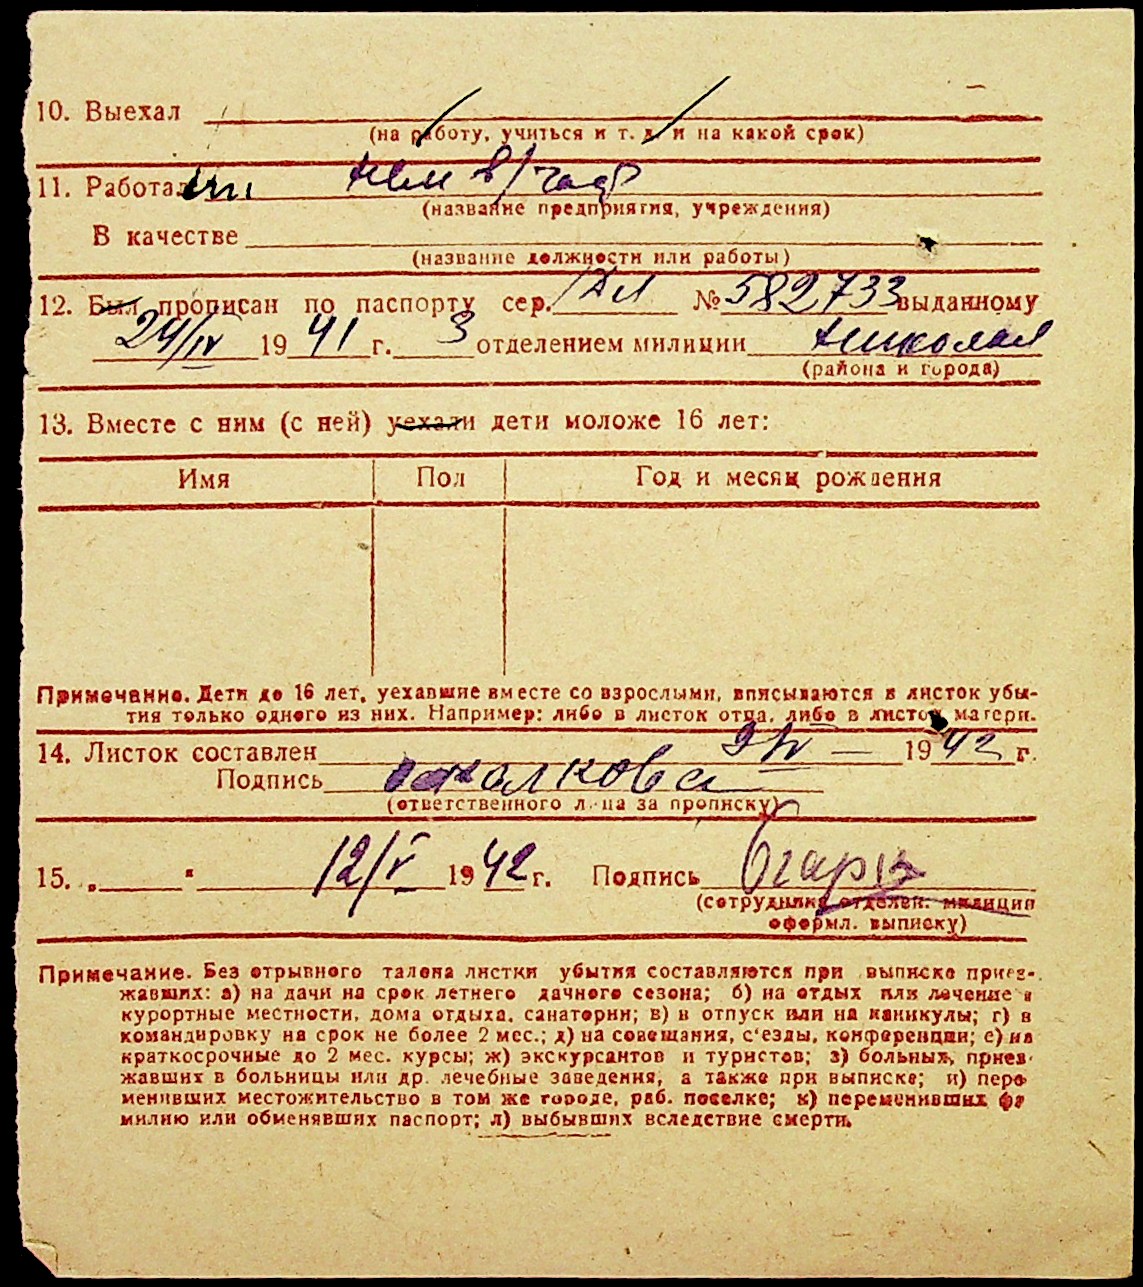 10. Выехал
(на работу, учиться и т. д. и на какой срок)
11. Работал
(название предприятия, учреждения)
В качестве
(название должности или работы)
12. Был прописан по паспорту сер. № 582733 выданному
24/IV 1941 г. 3 отделением милиции
(района и города)
13. Вместе с ним (с ней) уехали дети моложе 16 лет:
Имя Пол Год и месяц рождения
Примечание. Дети до 16 лет, уехавшие вместе со взрослыми, вписываются в листок убы-
тия только одного из них. Например: либо в листок отца, либо в листок матери.
14. Листок составлен 9/IV — 1942 г.
Подпись
(ответственного лица за прописку)
15. „ “ 12/V 1942 г. Подпись
(сотрудника отделен. милиции
оформл. выписку)
Примечание. Без отрывного талона листки убытия составляются при выписке приез-
жавших: а) на дачи на срок летнего дачного сезона; б) на отдых или лечение в
курортные местности, дома отдыха, санатории; в) в отпуск или на каникулы; г) в
командировку на срок не более 2 мес.; д) на совещания, с'езды, конференции; е) на
краткосрочные до 2 мес. курсы; ж) экскурсантов и туристов; з) больных, приез-
жавших в больницы или др. лечебные заведения, а также при выписке; и) пере
менивших местожительство в том же городе, раб. поселке; к) переменивших фа
милию или обменявших паспорт; л) выбывших вследствие смерти.